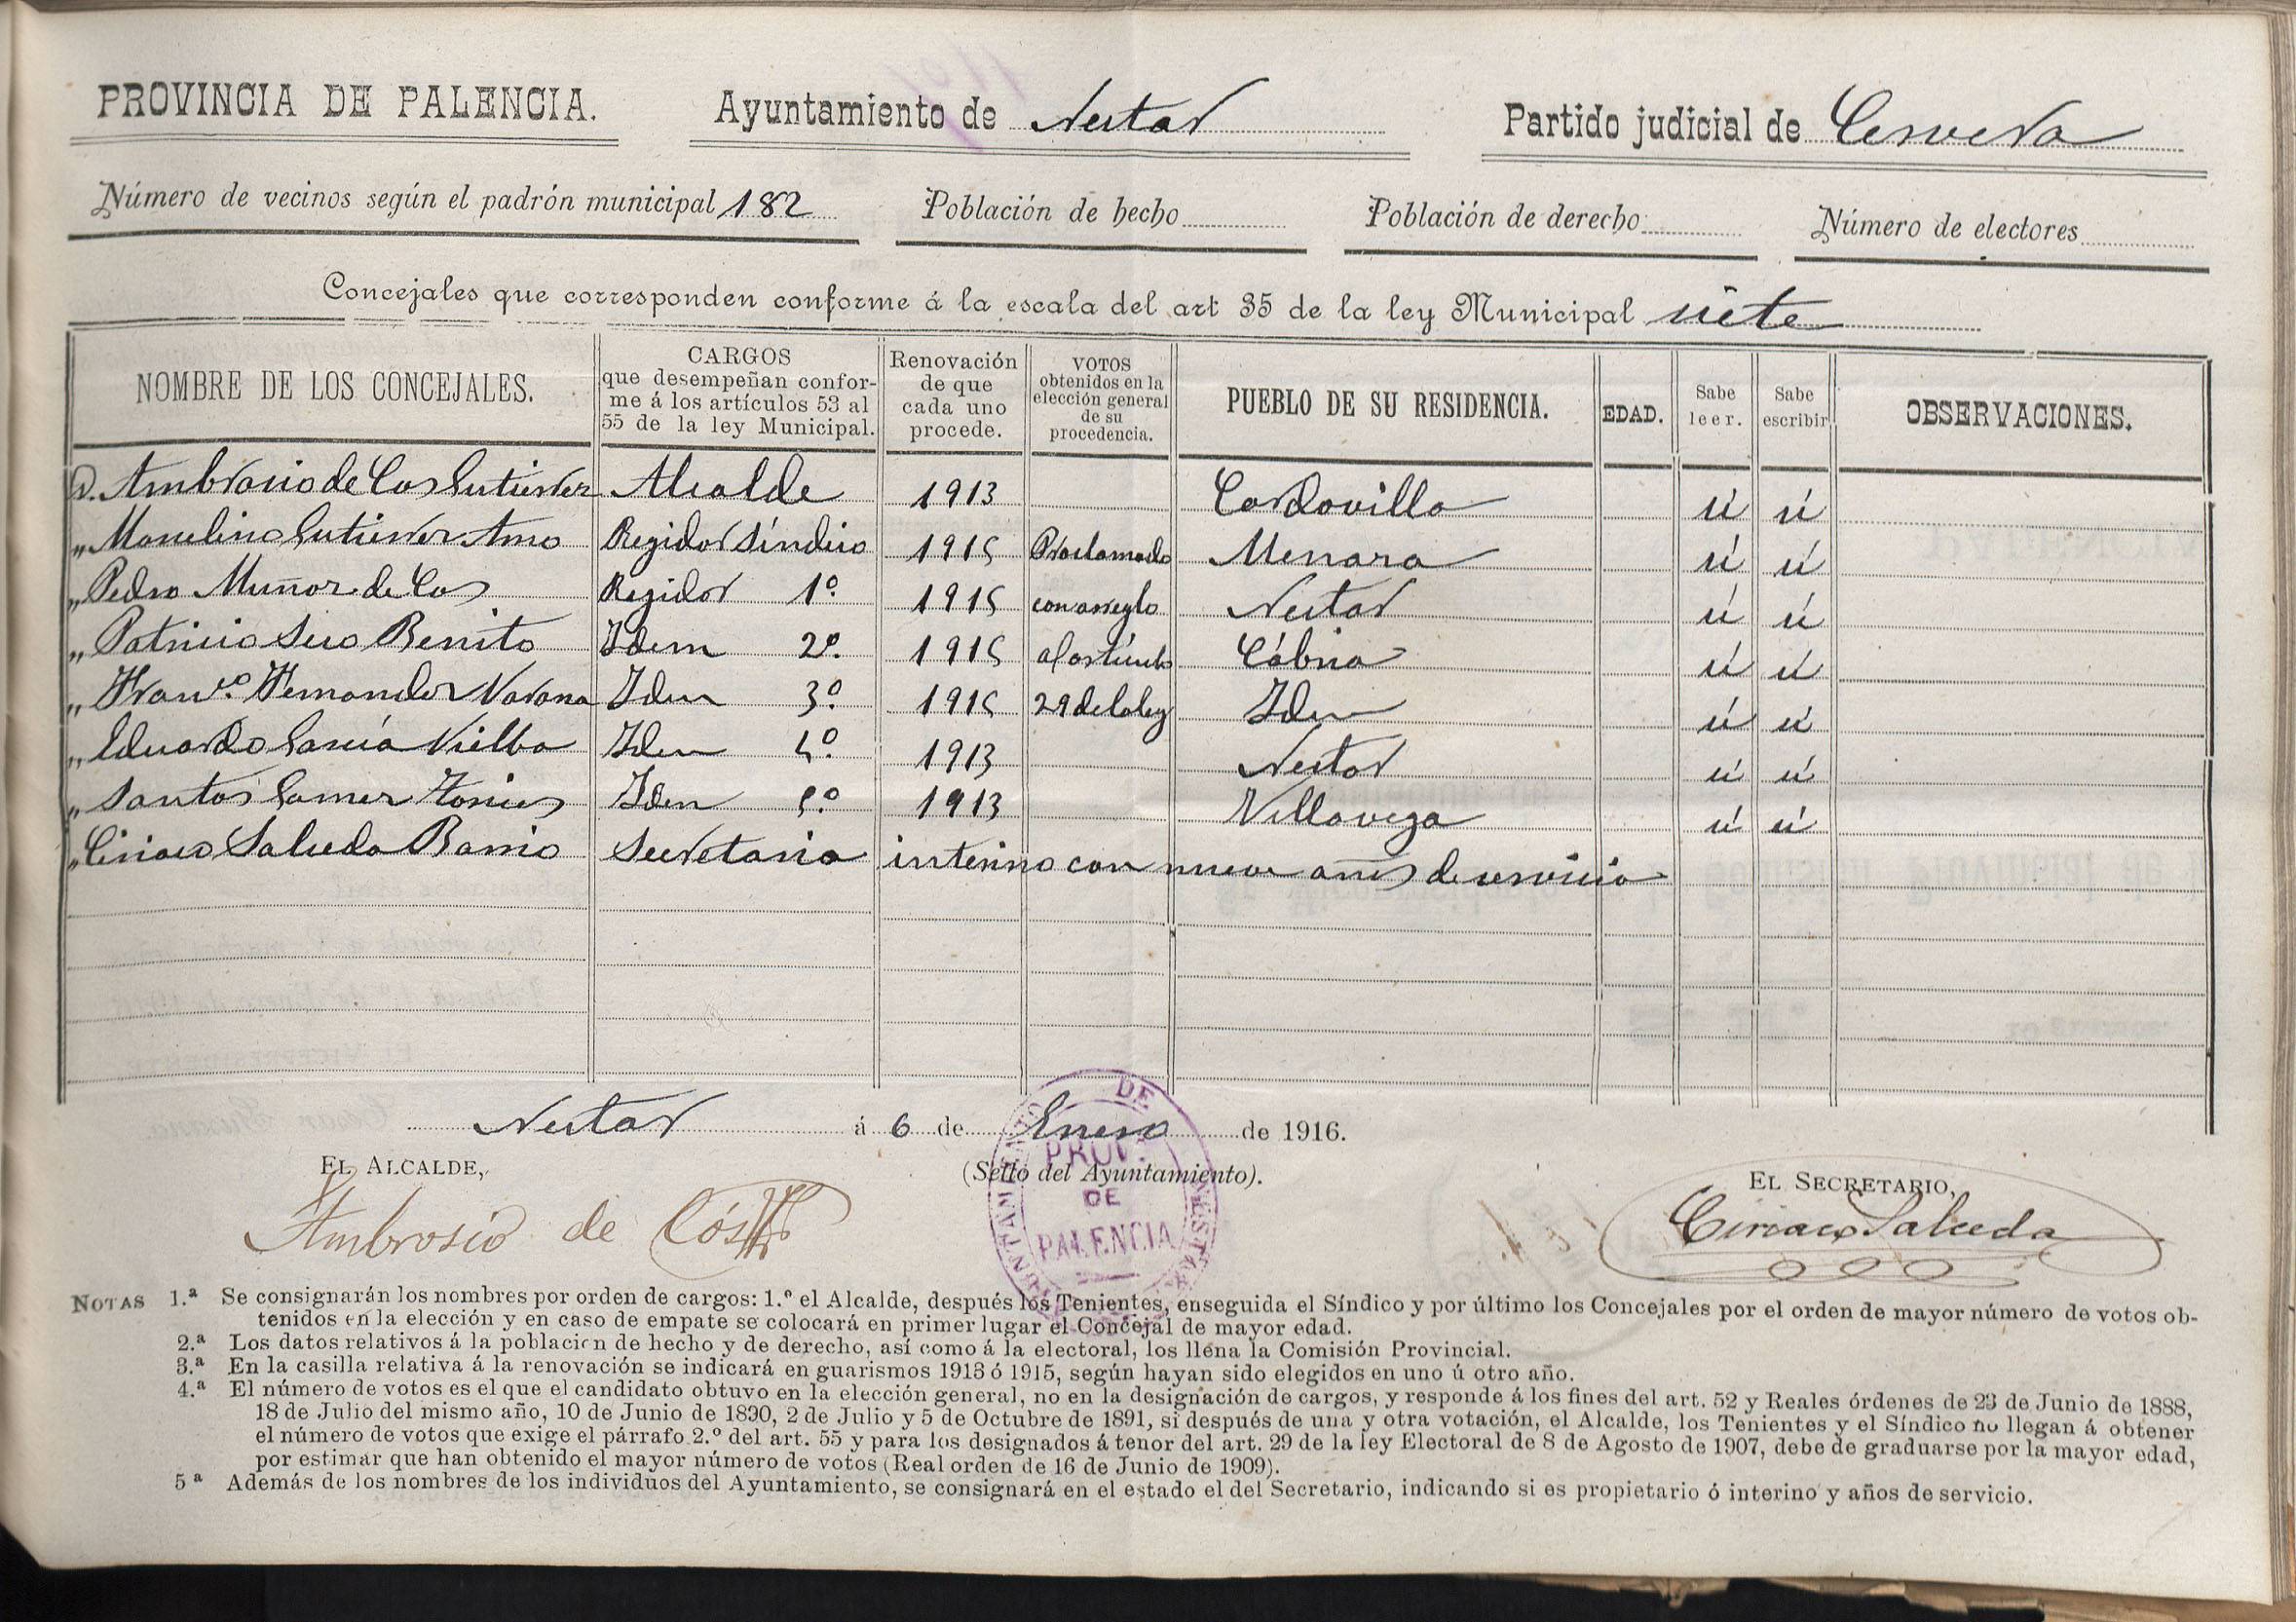 PROVINCIA DE PALENCIA. Ayuntamiento de Nestar Partido judicial de Cervera
Número de vecinos según el padrón municipal 182 Población de hecho Población de derecho Número de electores
Concejales que corresponden conforme á la escala del art 35 de la ley Municipal siete
NOMBRE DE LOS CONCEJALES. CARGOS que desempeñan confor- me á los artículos 53 al 55 de la ley Municipal. Renovación de que cada uno procede. VOTOS obtenidos en la elección general de su procedencia. PUEBLO DE SU RESIDENCIA. EDAD. Sabe leer. Sabe escribir OBSERVACIONES.
D. Ambrosio de Cos Gutierrez Alcalde 1913 Cordovilla si si
„ Marcelino Gutierrez Amo Regidor Síndico 1915 Proclamado Menaza si si
„ Pedro Muñoz de Cos Regidor 1º. 1915 con arreglo Nestar si si
„ Patricio Seco Benito Idem 2º. 1915 al artículo Cábria si si
„ Franco. Hernandez Narana Iden 3º. 1915 29 de la ley Iden si si
„ Eduardo García Vielba Iden 4º. 1913 Nestar si si
„ Santos Gomez Iden 5º. 1913 Villavega si si
„ Ciriaco Salceda Barrio Secretario interino con nueve años de servicio
Nestar á 6 de Enero de 1916.
EL ALCALDE, (Sello del Ayuntamiento). EL SECRETARIO,
Ambrosio de Cós Ciriaco Salceda
DE
PROV.
DE
PALENCIA
NOTAS 1.ª Se consignarán los nombres por orden de cargos: 1.º el Alcalde, después los Tenientes, enseguida el Síndico y por último los Concejales por el orden de mayor número de votos ob-
tenidos en la elección y en caso de empate se colocará en primer lugar el Concejal de mayor edad.
2.ª Los datos relativos á la población de hecho y de derecho, así como á la electoral, los llena la Comisión Provincial.
3.ª En la casilla relativa á la renovación se indicará en guarismos 1913 ó 1915, según hayan sido elegidos en uno ú otro año.
4.ª El número de votos es el que el candidato obtuvo en la elección general, no en la designación de cargos, y responde á los fines del art. 52 y Reales órdenes de 23 de Junio de 1888,
18 de Julio del mismo año, 10 de Junio de 1890, 2 de Julio y 5 de Octubre de 1891, si después de una y otra votación, el Alcalde, los Tenientes y el Síndico no llegan á obtener
el número de votos que exige el párrafo 2.º del art. 55 y para los designados á tenor del art. 29 de la ley Electoral de 8 de Agosto de 1907, debe de graduarse por la mayor edad,
por estimar que han obtenido el mayor número de votos (Real orden de 16 de Junio de 1909).
5ª Además de los nombres de los individuos del Ayuntamiento, se consignará en el estado el del Secretario, indicando si es propietario ó interino y años de servicio.